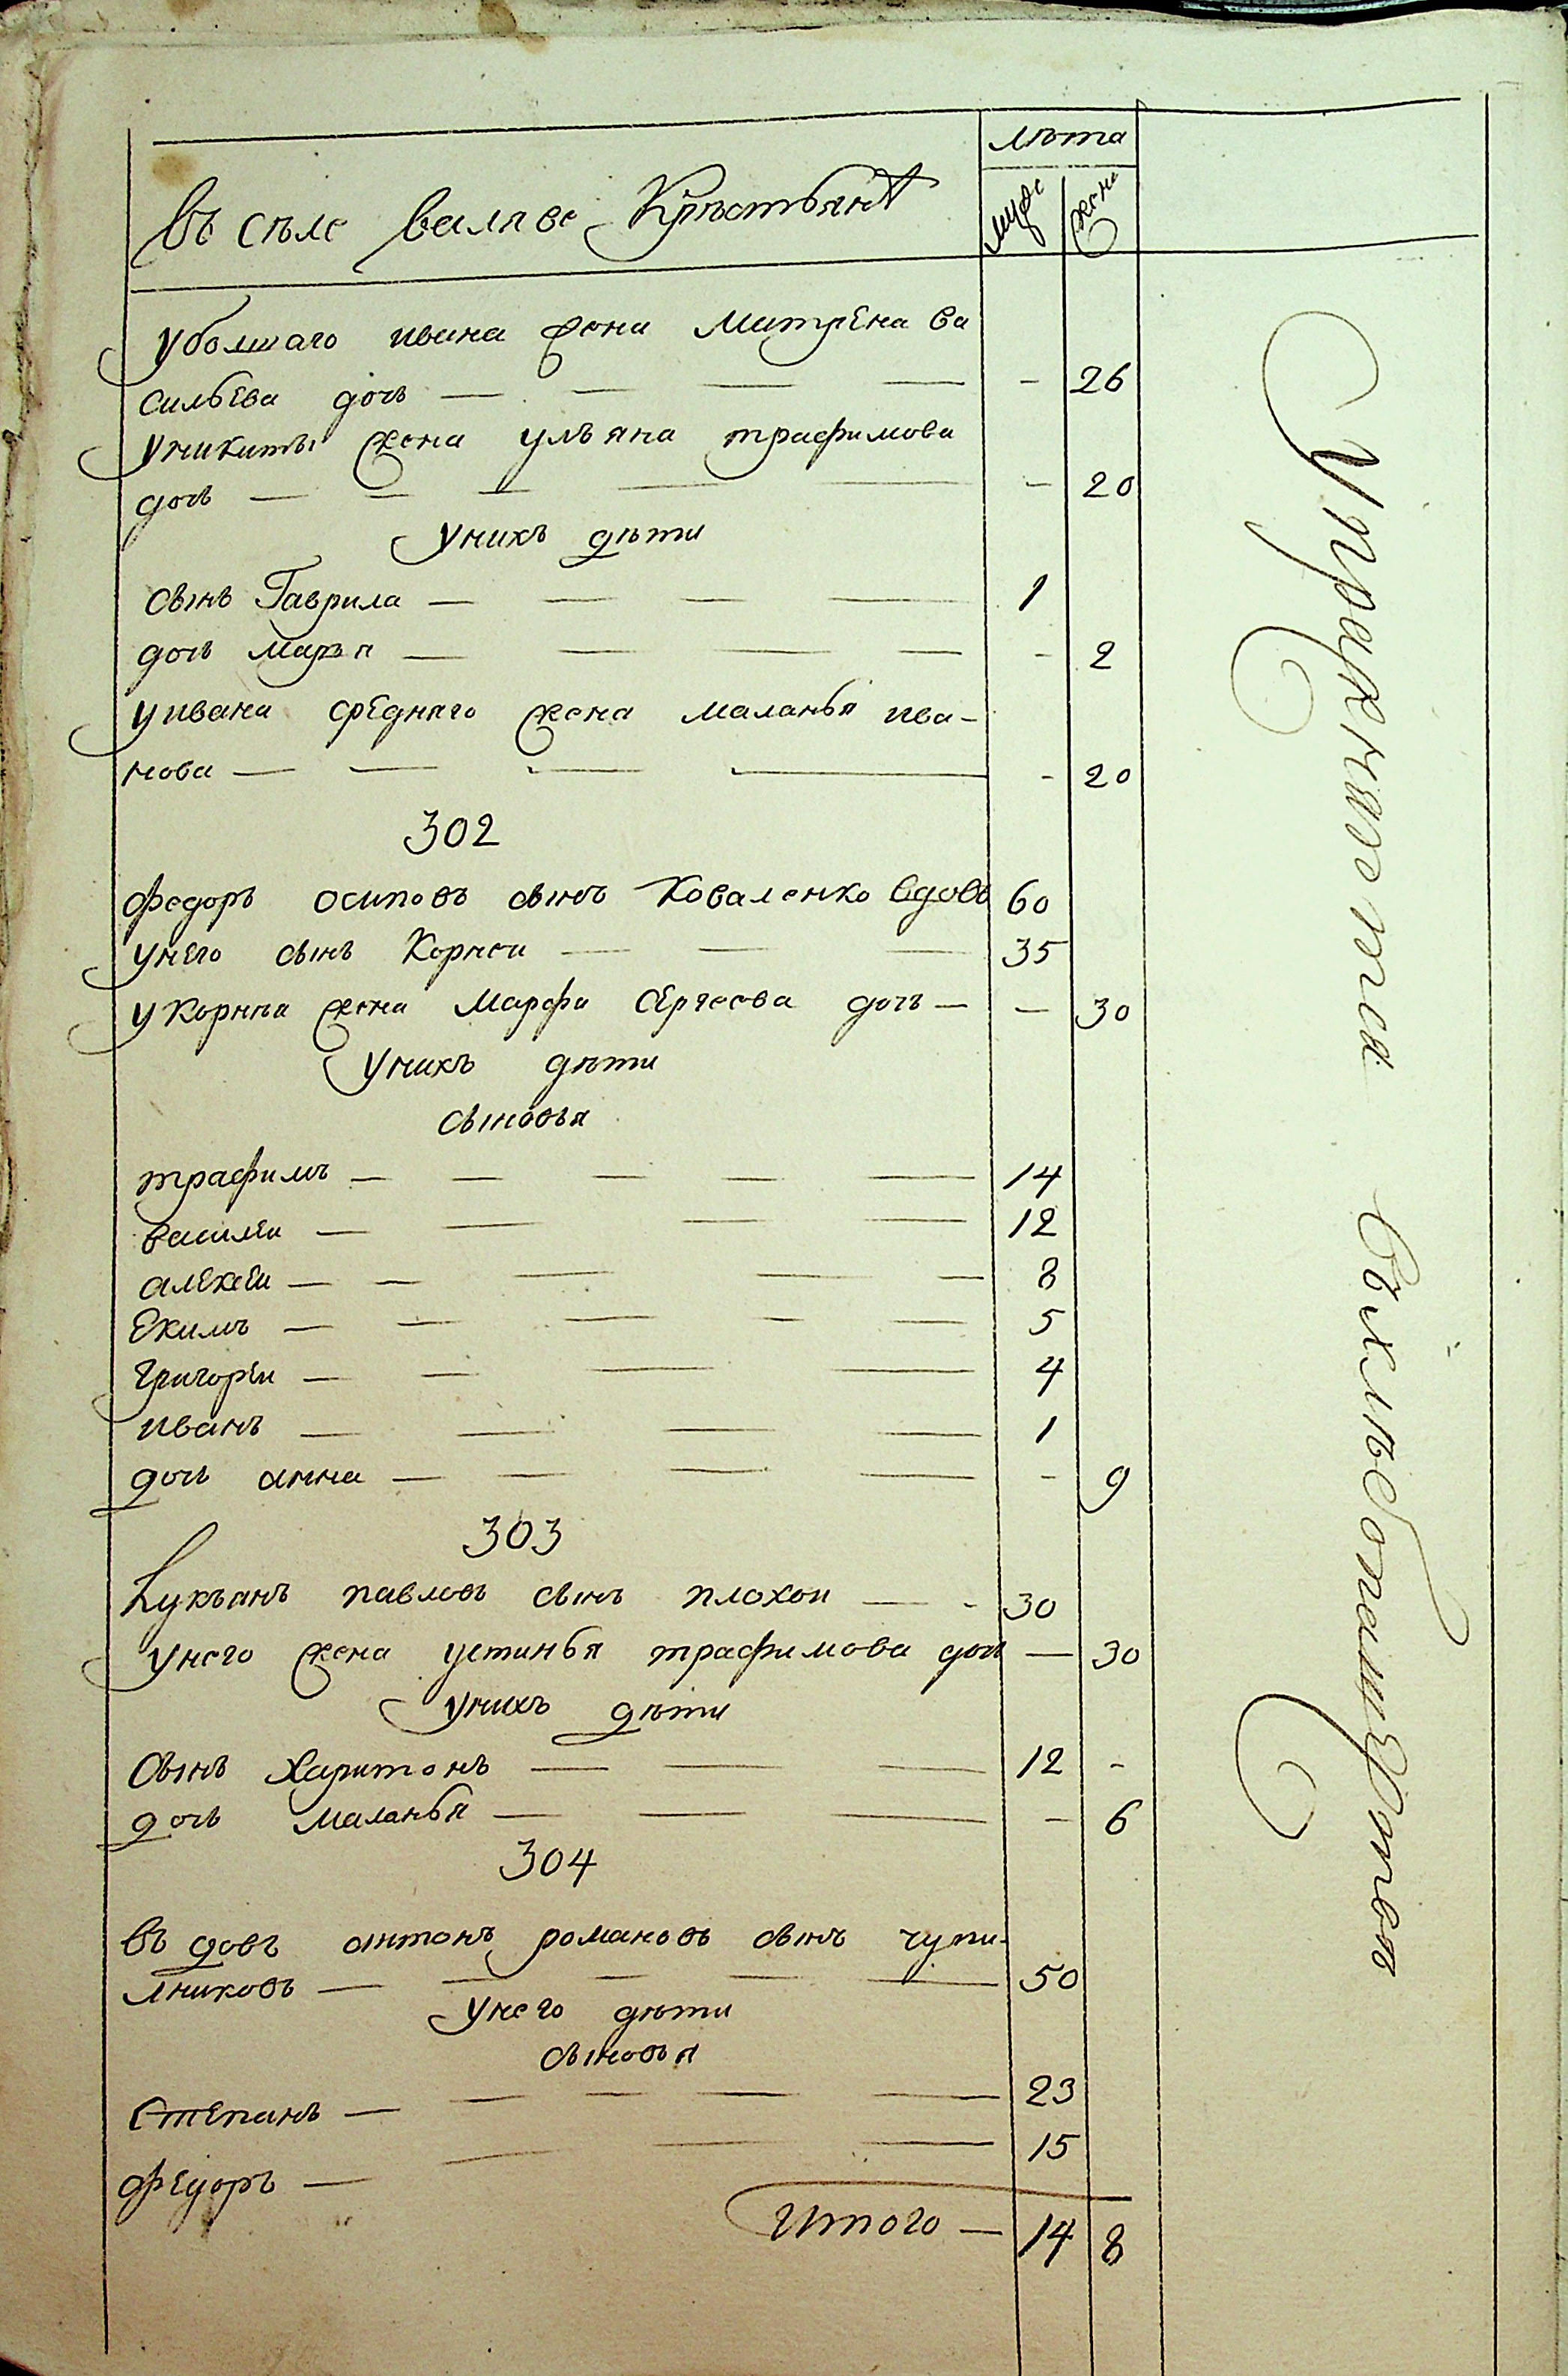 лѣта
въ селе валяве Крѣстьянъ
муже
жене
у болшаго ивана жена Матрена ва
сильева дочь — — — — - 26
у никиты жена ульяна трафимова
дочь — — — — — - 20
у нихъ дѣти
сынъ Гаврила — — — — 1
дочь марья — — — — - 2
у ивана средняго жена маланья ива-
нова — — — — - 20
302
федоръ осиповъ сынъ Коваленко вдовъ 60
у него сынъ Корнеи — — — 35
у Корнѣя жена Марфа сергеева дочь — — 30
у нихъ дѣти
сыновья
трафимъ — — — — — 14
василеи — — — — 12
алексеи — — — — — 8
Екимъ — — — — — 5
Григореи — — — — 4
иванъ — — — — 1
дочь анна — — — — - 9
303
Лукъянъ павловъ сынъ плохои — - 30
у него жена устинья трафимова дочь — 30
у нихъ дѣти
сынъ харитонъ — — — 12 -
дочь маланья — — — - 6
304
въдовъ антонъ романовъ сынъ чупи-
лниковъ — — — — — 50
у него дѣти
сыновья
степанъ — — — — — 23
федоръ — — — — 15
Итого — 14 8
Упражняются